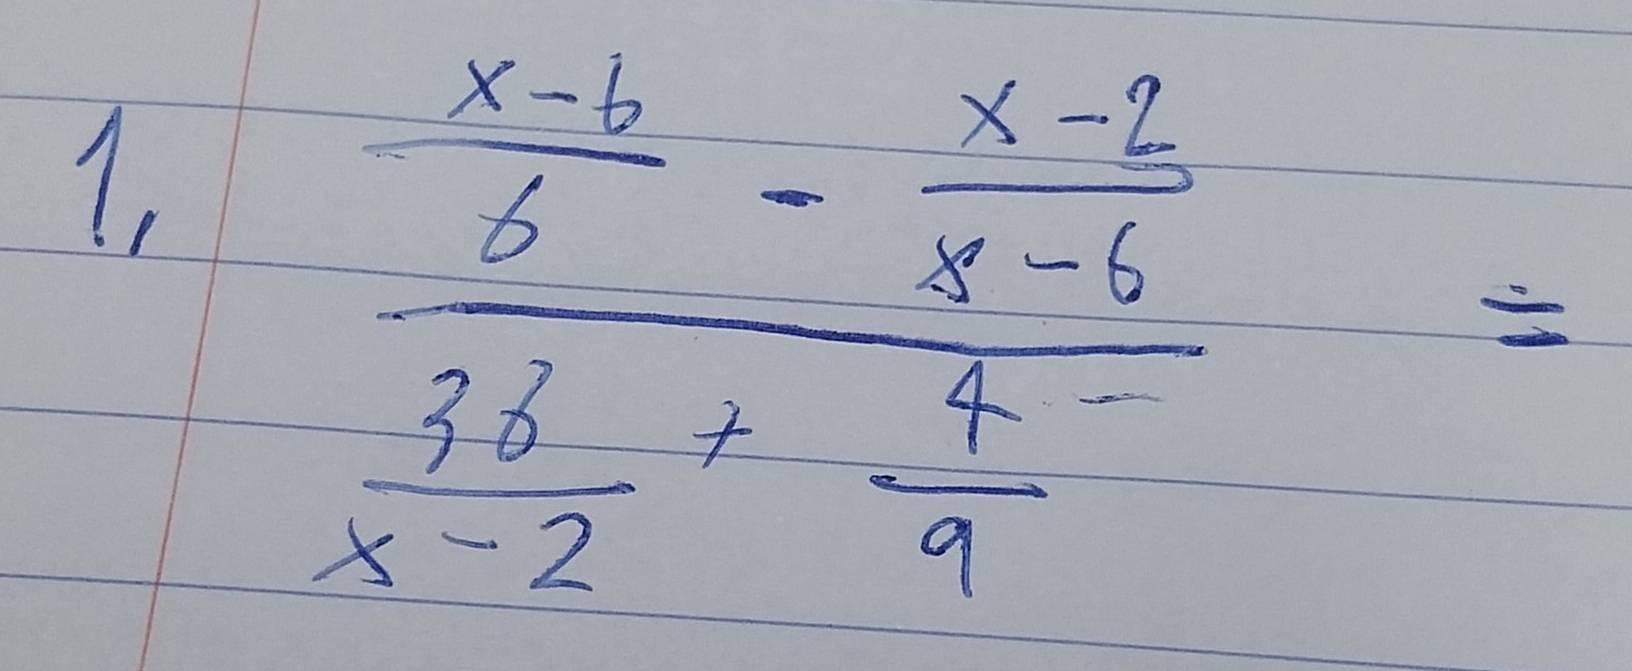 1, \frac{\frac{x-6}{6} - \frac{x-2}{x-6}}{\frac{36}{x-2} + \frac{4}{9}} =